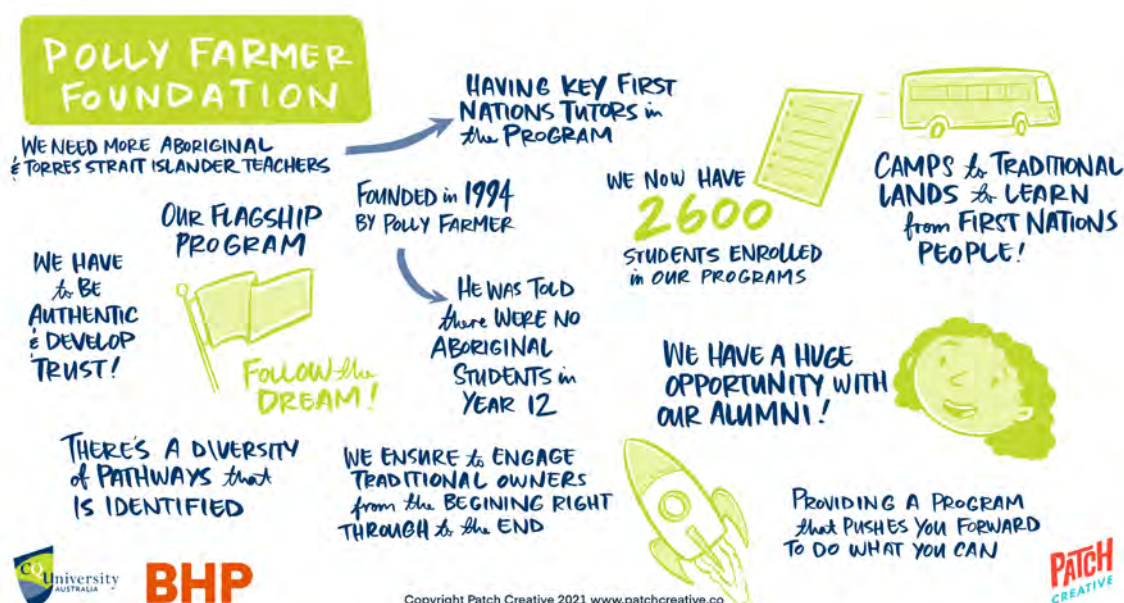 POLLY FARMER
FOUNDATION
WE NEED MORE ABORIGINAL
& TORRES STRAIT ISLANDER TEACHERS
HAVING KEY FIRST
NATIONS TUTORS in
the PROGRAM
FOUNDED in 1994
BY POLLY FARMER
HE WAS TOLD
there WERE NO
ABORIGINAL
STUDENTS in
YEAR 12
OUR FLAGSHIP
PROGRAM
FOLLOW the
DREAM!
WE HAVE
to BE
AUTHENTIC
& DEVELOP
TRUST!
WE NOW HAVE
2600
STUDENTS ENROLLED
in OUR PROGRAMS
CAMPS to TRADITIONAL
LANDS to LEARN
from FIRST NATIONS
PEOPLE!
WE HAVE A HUGE
OPPORTUNITY WITH
OUR ALUMNI!
THERE'S A DIVERSITY
of PATHWAYS that
IS IDENTIFIED
WE ENSURE to ENGAGE
TRADITIONAL OWNERS
from the BEGINING RIGHT
THROUGH to the END
PROVIDING A PROGRAM
that PUSHES YOU FORWARD
TO DO WHAT YOU CAN
CQUniversity
AUSTRALIA
BHP
Copyright Patch Creative 2021 www.patchcreative.co
PATCH
CREATIVE